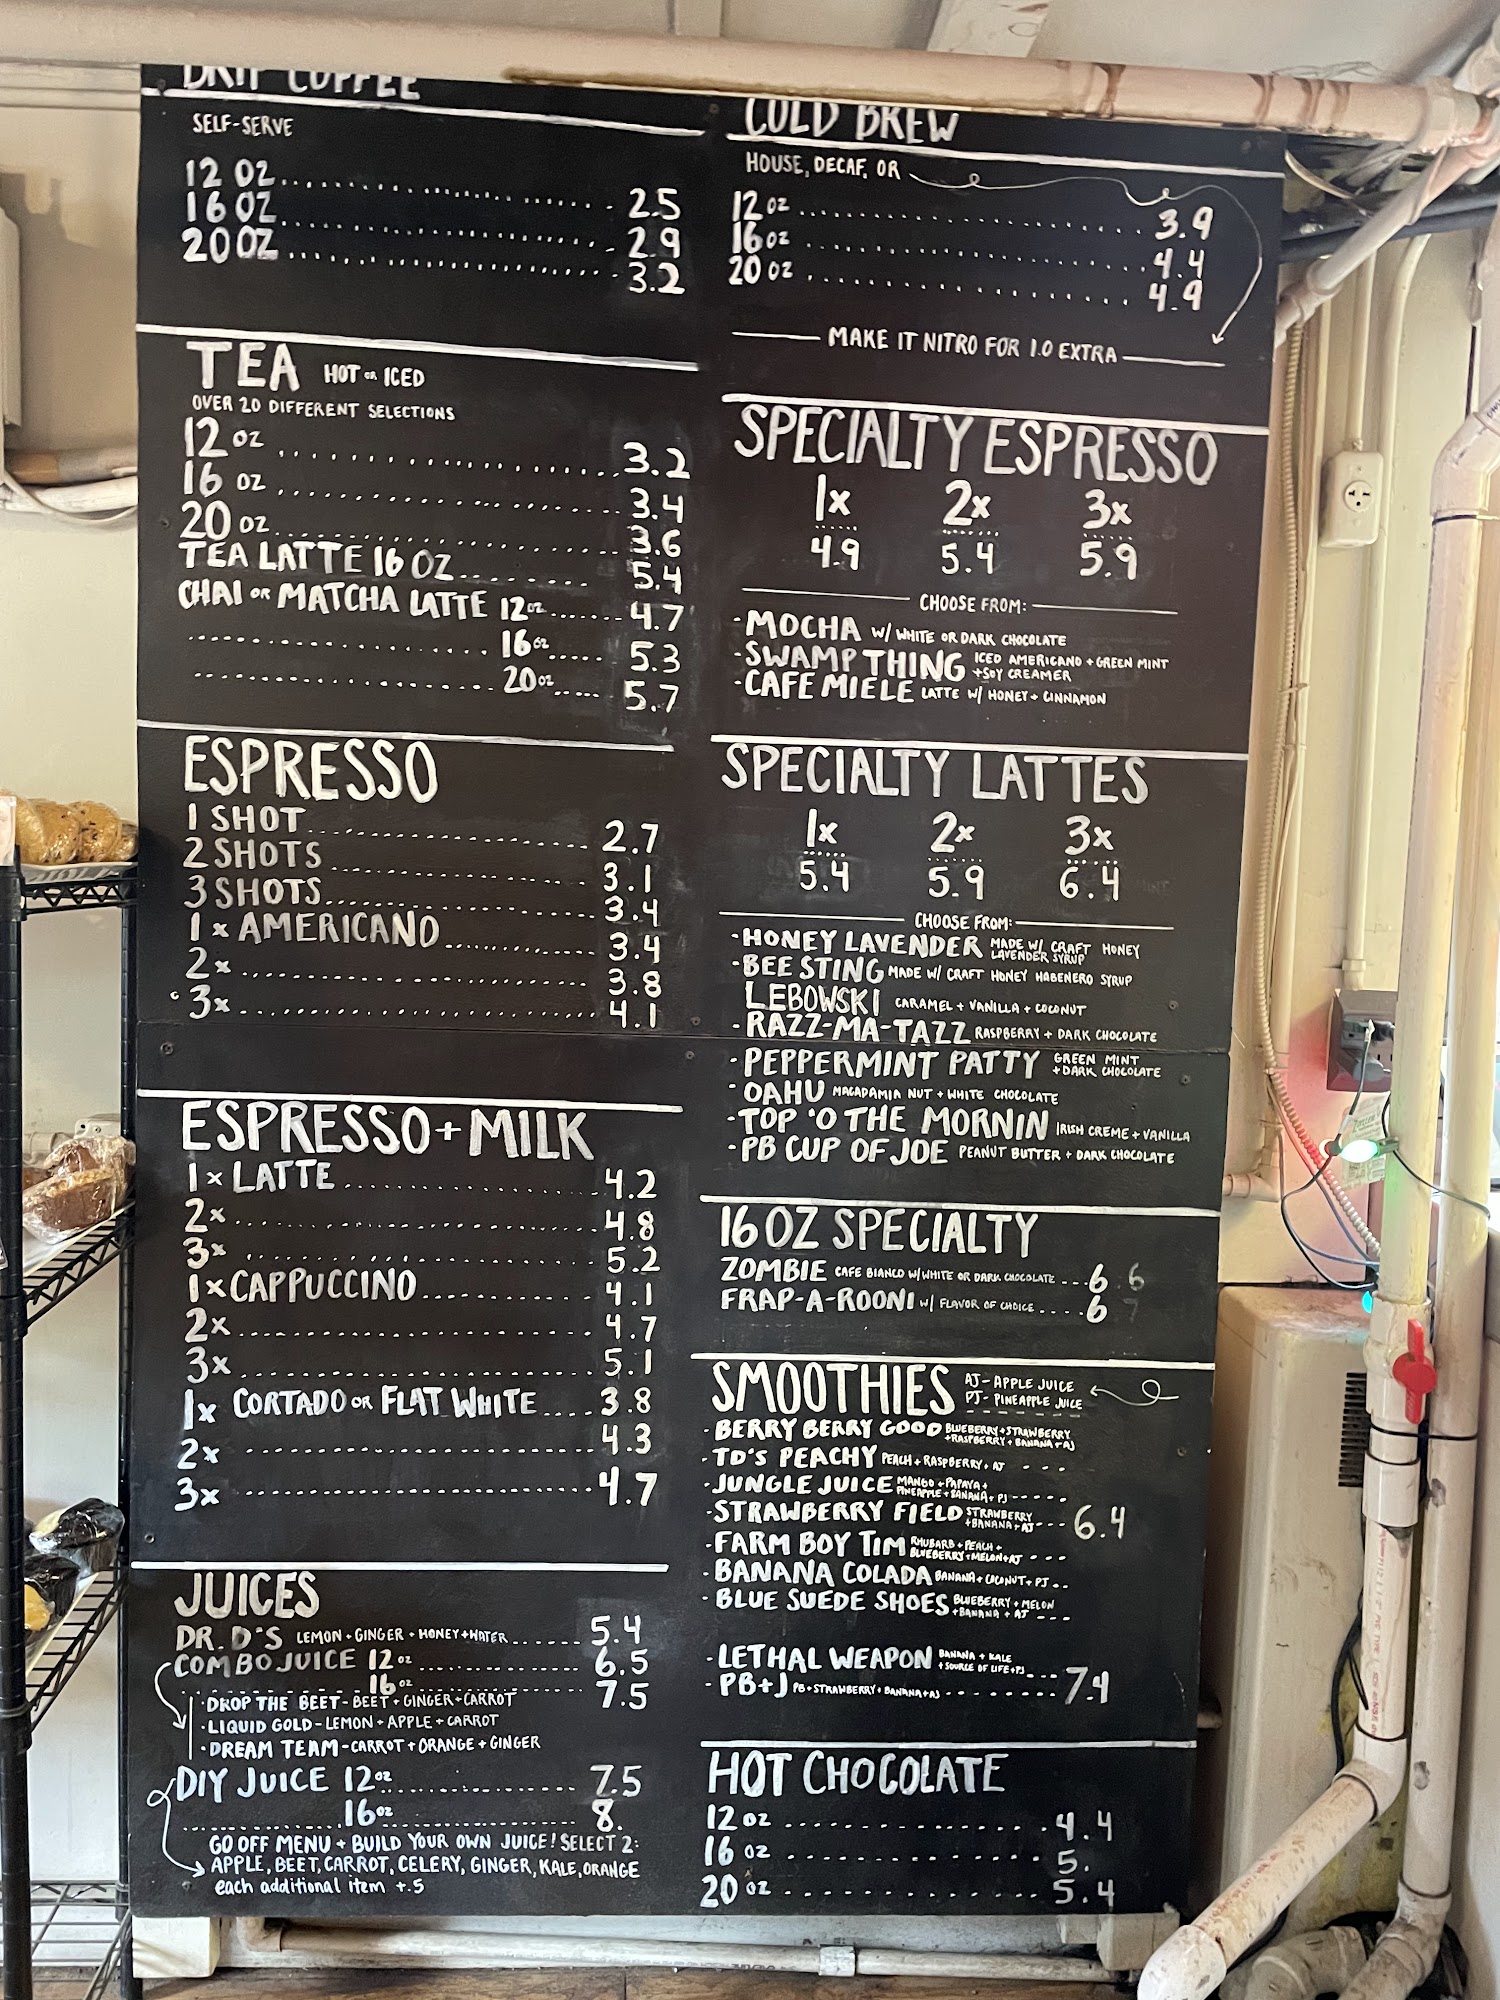 DRIP COFFEE
SELF-SERVE
12 OZ 2.5
16 OZ 2.9
20 OZ 3.2
TEA HOT OR ICED
OVER 20 DIFFERENT SELECTIONS
12 OZ 3.2
16 OZ 3.4
20 OZ 3.6
TEA LATTE 16 OZ 5.4
CHAI OR MATCHA LATTE 12 OZ 4.7
16 OZ 5.3
20 OZ 5.7
ESPRESSO
1 SHOT 2.7
2 SHOTS 3.1
3 SHOTS 3.4
1x AMERICANO 3.4
2x 3.8
3x 4.1
ESPRESSO + MILK
1x LATTE 4.2
2x 4.8
3x 5.2
1x CAPPUCCINO 4.1
2x 4.7
3x 5.1
1x CORTADO OR FLAT WHITE 3.8
2x 4.3
3x 4.7
JUICES
DR. D'S LEMON + GINGER + HONEY + WATER 5.4
COMBO JUICE 12 OZ 6.5
16 OZ 7.5
· DROP THE BEET - BEET + GINGER + CARROT
· LIQUID GOLD - LEMON + APPLE + CARROT
· DREAM TEAM - CARROT + ORANGE + GINGER
DIY JUICE 12 OZ 7.5
16 OZ 8.
GO OFF MENU + BUILD YOUR OWN JUICE! SELECT 2:
APPLE, BEET, CARROT, CELERY, GINGER, KALE, ORANGE
each additional item +.5
COLD BREW
HOUSE, DECAF, OR
12 OZ 3.9
16 OZ 4.4
20 OZ 4.9
MAKE IT NITRO FOR 1.0 EXTRA
SPECIALTY ESPRESSO
1x 2x 3x
4.9 5.4 5.9
CHOOSE FROM:
- MOCHA W/ WHITE OR DARK CHOCOLATE
- SWAMP THING ICED AMERICANO + GREEN MINT
+ SOY CREAMER
- CAFE MIELE LATTE W/ HONEY + CINNAMON
SPECIALTY LATTES
1x 2x 3x
5.4 5.9 6.4
CHOOSE FROM:
- HONEY LAVENDER MADE W/ CRAFT HONEY
LAVENDER SYRUP
- BEE STING MADE W/ CRAFT HONEY HABENERO SYRUP
LEBOWSKI CARAMEL + VANILLA + COCONUT
- RAZZ-MA-TAZZ RASPBERRY + DARK CHOCOLATE
- PEPPERMINT PATTY GREEN MINT
+ DARK CHOCOLATE
- OAHU MACADAMIA NUT + WHITE CHOCOLATE
- TOP 'O THE MORNIN IRISH CREME + VANILLA
- PB CUP OF JOE PEANUT BUTTER + DARK CHOCOLATE
16 OZ SPECIALTY
ZOMBIE CAFE BIANCO W/ WHITE OR DARK CHOCOLATE 6.6
FRAP-A-ROONI W/ FLAVOR OF CHOICE 6
SMOOTHIES AJ - APPLE JUICE
PJ - PINEAPPLE JUICE
· BERRY BERRY GOOD BLUEBERRY + STRAWBERRY
+ RASPBERRY + BANANA + AJ
· TD'S PEACHY PEACH + RASPBERRY + AJ
· JUNGLE JUICE MANGO + PAPAYA +
PINEAPPLE + BANANA + PJ
· STRAWBERRY FIELD STRAWBERRY
+ BANANA + AJ 6.4
· FARM BOY TIM RHUBARB + PEACH +
BLUEBERRY + MELON + AJ
· BANANA COLADA BANANA + COCONUT + PJ
· BLUE SUEDE SHOES BLUEBERRY + MELON
+ BANANA + AJ
· LETHAL WEAPON BANANA + KALE
+ SOURCE OF LIFE + PJ 7.4
· PB+J PB + STRAWBERRY + BANANA + AJ
HOT CHOCOLATE
12 OZ 4.4
16 OZ 5.
20 OZ 5.4